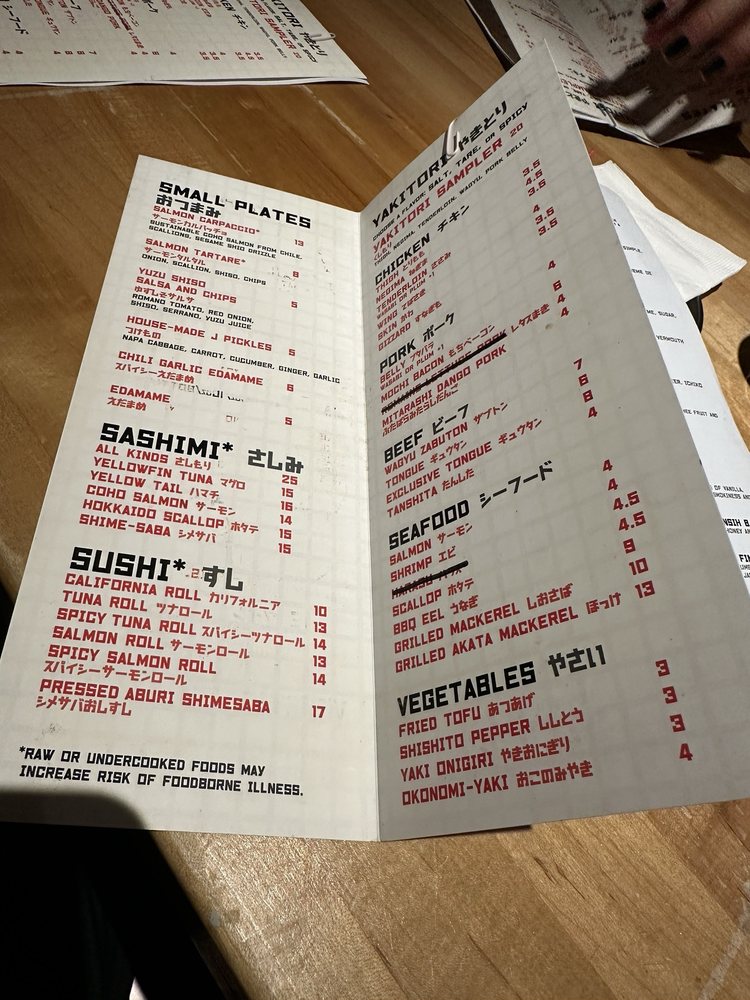 SMALL PLATES
おつまみ
SALMON CARPACCIO* 13
サーモンカルパッチョ
SUSTAINABLE COHO SALMON FROM CHILE,
SCALLIONS, SESAME SHIO DRIZZLE
SALMON TARTARE* 8
サーモンタルタル
ONION, SCALLION, SHISO, CHIPS
YUZU SHISO
SALSA AND CHIPS 5
やすしそサルサ
ROMANO TOMATO, RED ONION,
SHISO, SERRANO, YUZU JUICE
HOUSE-MADE J PICKLES 5
つけもの
NAPA CABBAGE, CARROT, CUCUMBER, GINGER, GARLIC
CHILI GARLIC EDAMAME 6
スパイシーえだまめ
EDAMAME 5
えだまめ
SASHIMI* さしみ
ALL KINDS さしもり 25
YELLOWFIN TUNA マグロ 15
YELLOW TAIL ハマチ 16
COHO SALMON サーモン 14
HOKKAIDO SCALLOP ホタテ 15
SHIME-SABA シメサバ 15
SUSHI* すし
CALIFORNIA ROLL カリフォルニア 10
TUNA ROLL ツナロール 13
SPICY TUNA ROLL スパイシーツナロール 14
SALMON ROLL サーモンロール 13
SPICY SALMON ROLL 14
スパイシーサーモンロール
PRESSED ABURI SHIMESABA 17
シメサバおしすし
*RAW OR UNDERCOOKED FOODS MAY
INCREASE RISK OF FOODBORNE ILLNESS.
YAKITORI やきとり
CHOOSE A FLAVOR: SALT, TARE, OR SPICY
YAKITORI SAMPLER 20
THIGH, NEGIMA, TENDERLOIN, WAGYU, PORK BELLY
CHICKEN チキン
THIGH とりもも 3.5
NEGIMA ねぎま 4.5
TENDERLOIN ささみ 3.5
WASABI OR PLUM
WING てばさき 4
SKIN かわ 3.5
GIZZARD すなぎも 3.5
PORK ポーク
BELLY ブタバラ 4
WASABI OR PLUM +1
MOCHI BACON もちベーコン 6
レタスまき 4
MITARASHI DANGO PORK 4
ぶたばらみたらしだんご
BEEF ビーフ
WAGYU ZABUTON ザブトン 7
TONGUE ギュウタン 6
EXCLUSIVE TONGUE ギュウタン 8
TANSHITA たんした 4
SEAFOOD シーフード
SALMON サーモン 4
SHRIMP エビ 4
4.5
SCALLOP ホタテ 4.5
BBQ EEL うなぎ 9
GRILLED MACKEREL しおさば 10
GRILLED AKATA MACKEREL ほっけ 13
VEGETABLES やさい
FRIED TOFU あつあげ 3
SHISHITO PEPPER ししとう 3
YAKI ONIGIRI やきおにぎり 3
OKONOMI-YAKI おこのみやき 4